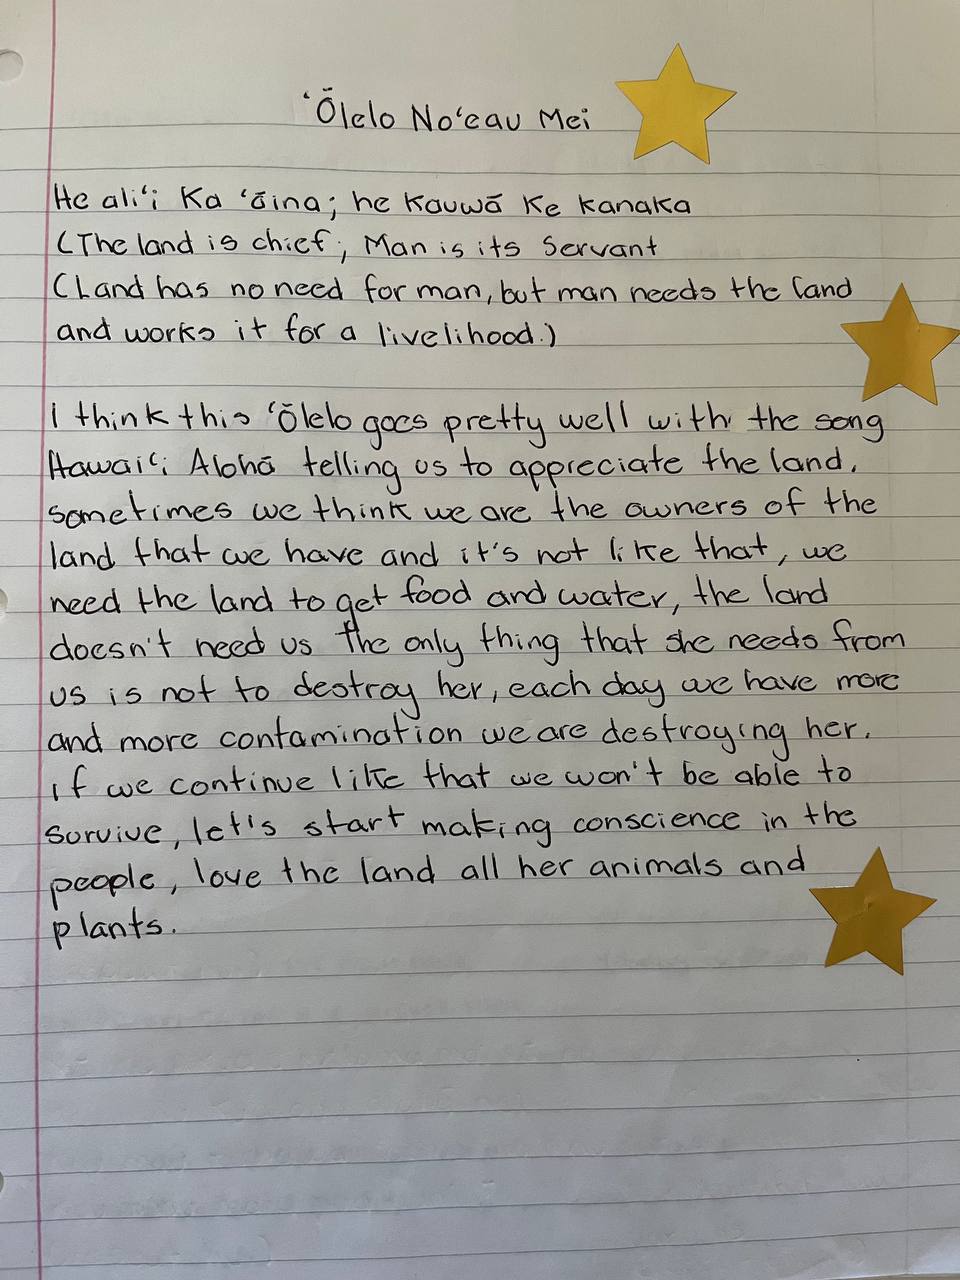 ʻŌlelo Noʻeau Mei
He aliʻi Ka ʻāina; he Kauwā Ke kanaka
(The land is chief; Man is its Servant
(Land has no need for man, but man needs the land
and works it for a livelihood.)
I think this ʻŌlelo goes pretty well with the song
Hawaiʻi Alohā telling us to appreciate the land.
sometimes we think we are the owners of the
land that we have and it's not like that, we
need the land to get food and water, the land
doesn't need us the only thing that she needs from
us is not to destroy her, each day we have more
and more contamination we are destroying her.
if we continue like that we won't be able to
survive, let's start making conscience in the
people, love the land all her animals and
plants.